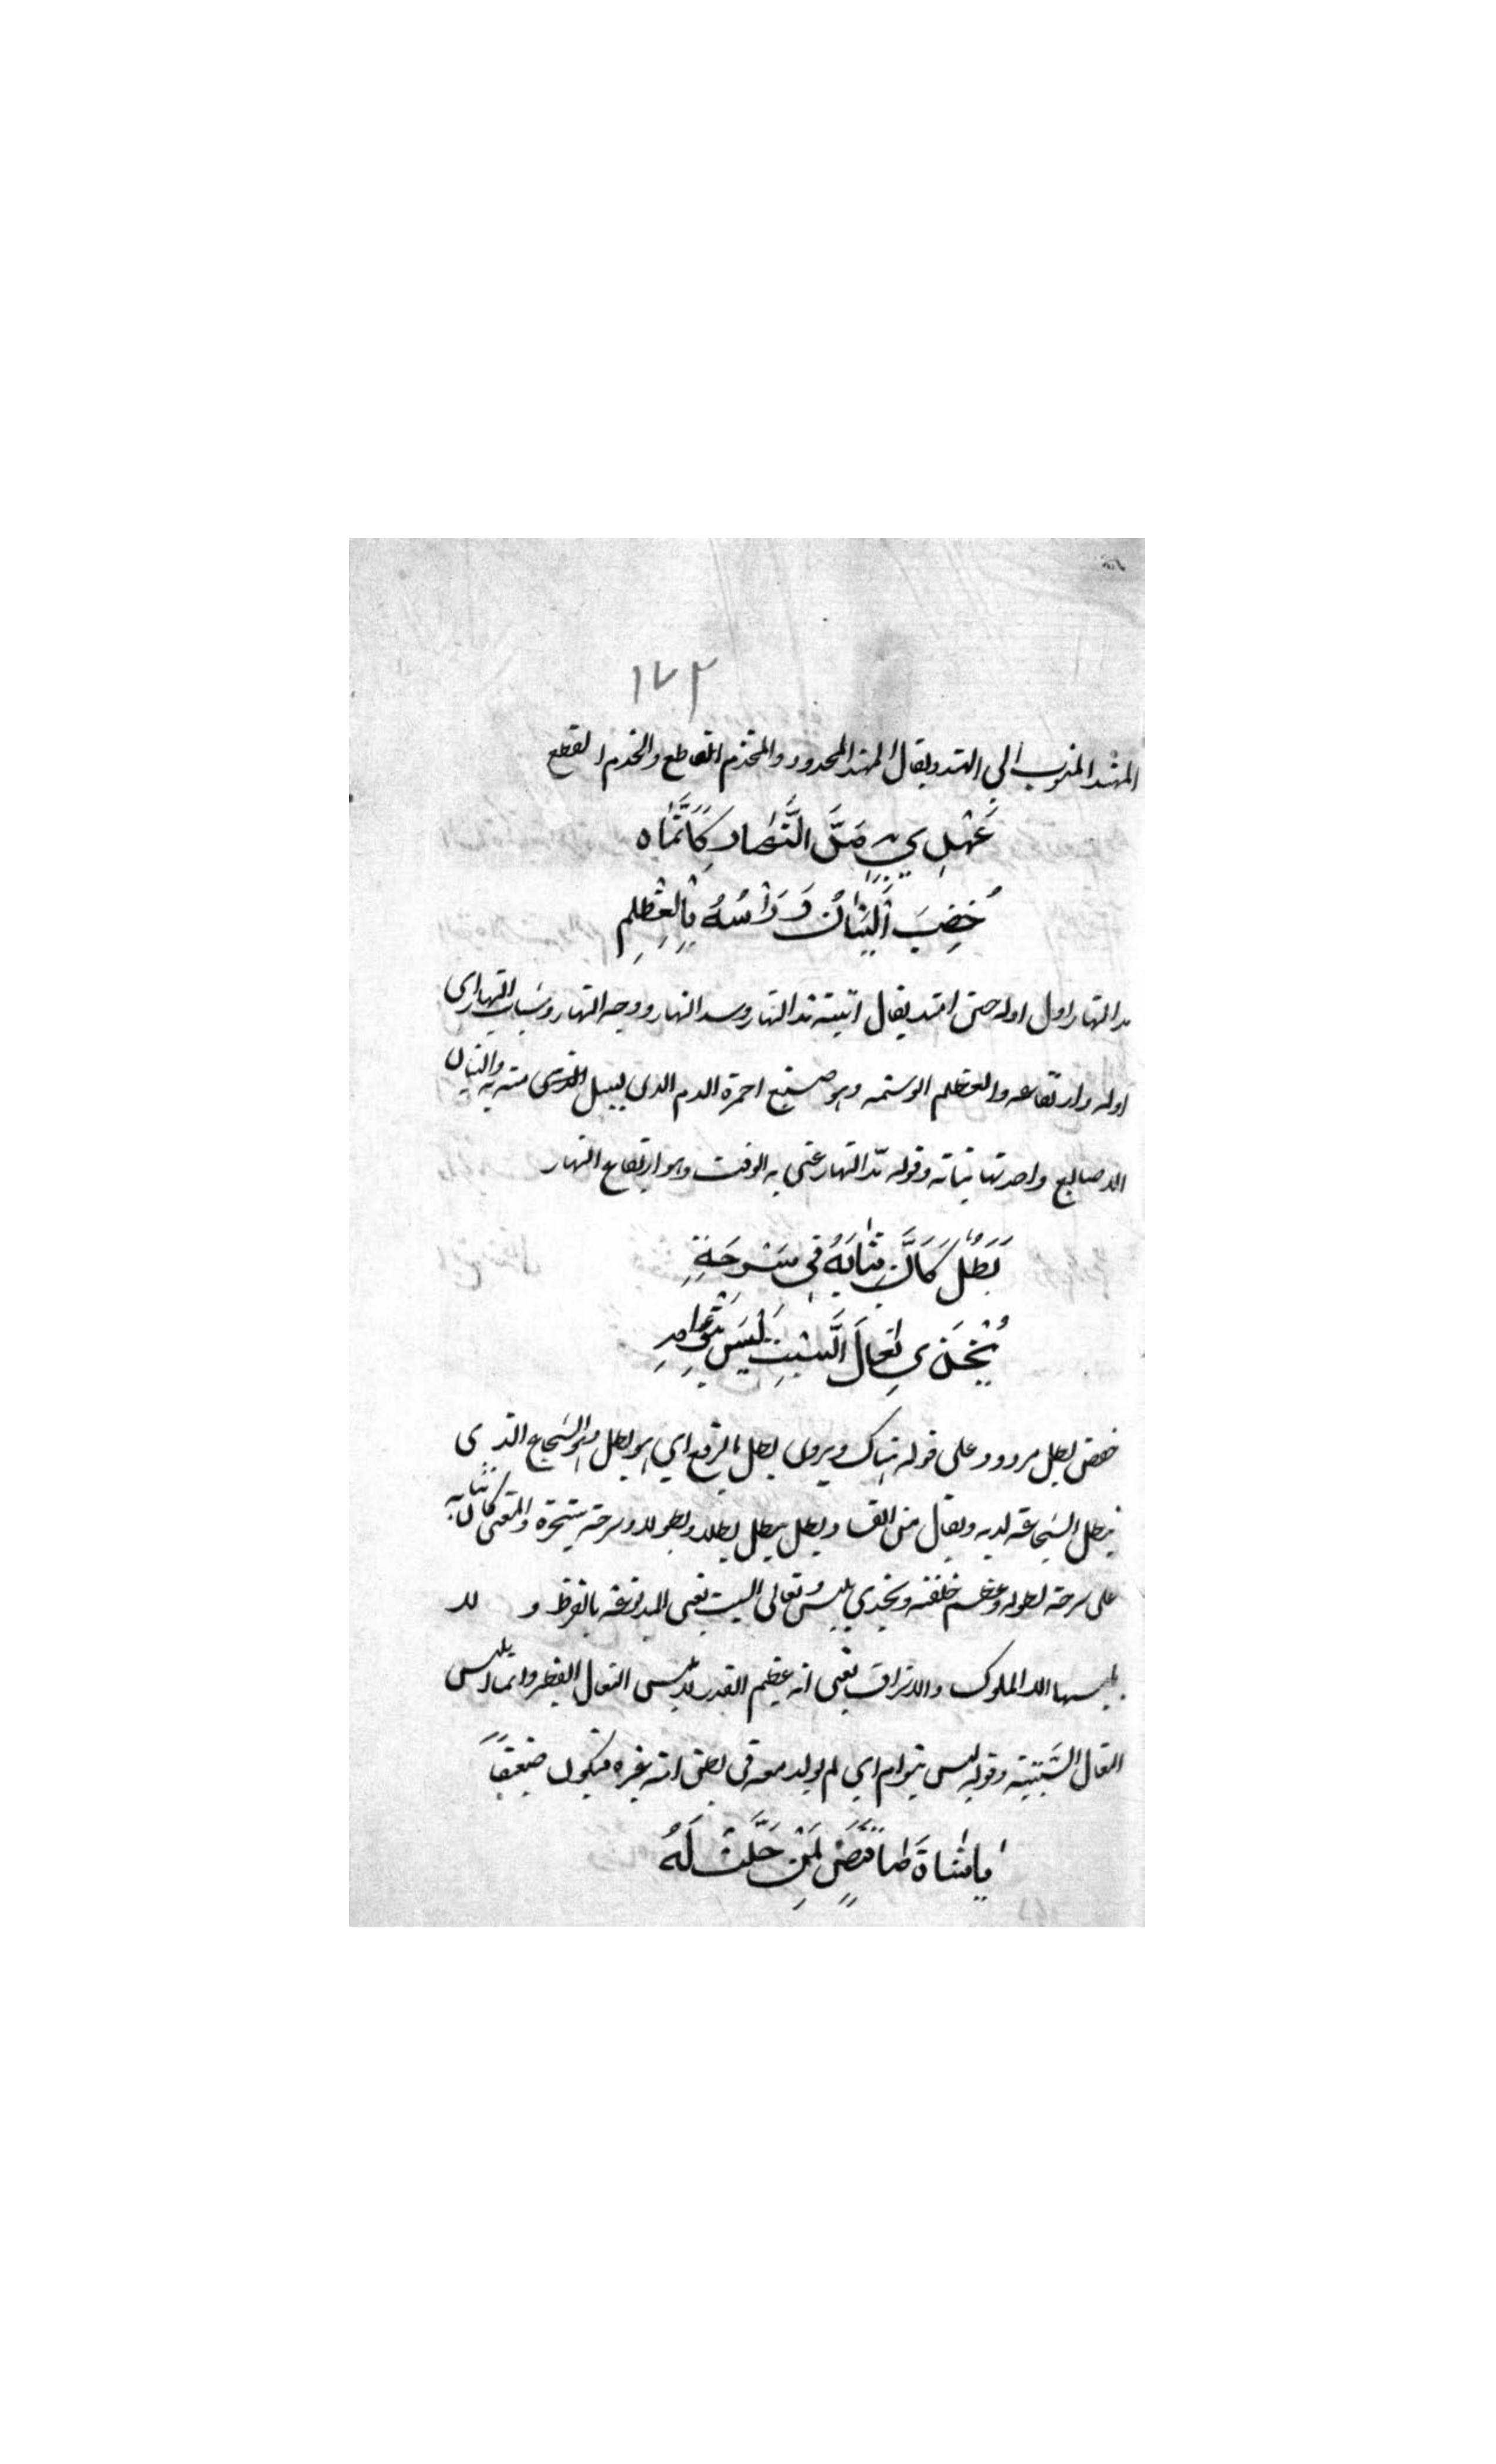 ١٧٢
المهند المنسوب الى الهند ويقال المهند المحدود والمخذم القاطع والخذم القطع
عَهْدِي بِهِ مَدَّ النَّهَارِ كَأَنَّمَا
خُضِبَ الْبَنَانُ وَرَأْسُهُ بِالْعِظْلِمِ
مد النهار اول اوله حتى امتد يقال اتيته مد النهار وشد النهار ووجه النهار وشباب النهار اى
اوله وارتفاعه والعظلم الوسمه وهو صبغ احمرة الدم الذى يسيل منه به والبنان
الاصابع واحدتها بنانه وقوله مد النهار عنى به الوقت وهو ارتفاع النهار
بَطَلٍ كَأَنَّ ثِيَابَهُ فِي سَرْحَةٍ
يُحْذَى نِعَالَ السِّبْتِ لَيْسَ بِتَوْأَمِ
خفض بطل مردود على قوله هتاك ويروى بطل بالرفع اي هو بطل وهو الشجاع الذى
تبطل الشجاعة لديه ويقال بطل يبطل بطالة وبطولة وسرحة شجرة والمعنى كان ثيابه
على سرحة لطوله وعظم خلقته ويحذي يلبس ونعال السبت يعنى المدبوغة بالقرظ و لا
يلبسها الا الملوك والاشراف يعنى انه عظيم القدر لا يلبس النعال الفطير وانما يلبس
النعال السبتية وقوله ليس بتوام اي لم يولد معه في بطن امه غيره فيكون ضعيفاً
يَا شَاةَ مَا قَنَصٍ لِمَنْ حَلَّتْ لَهُ